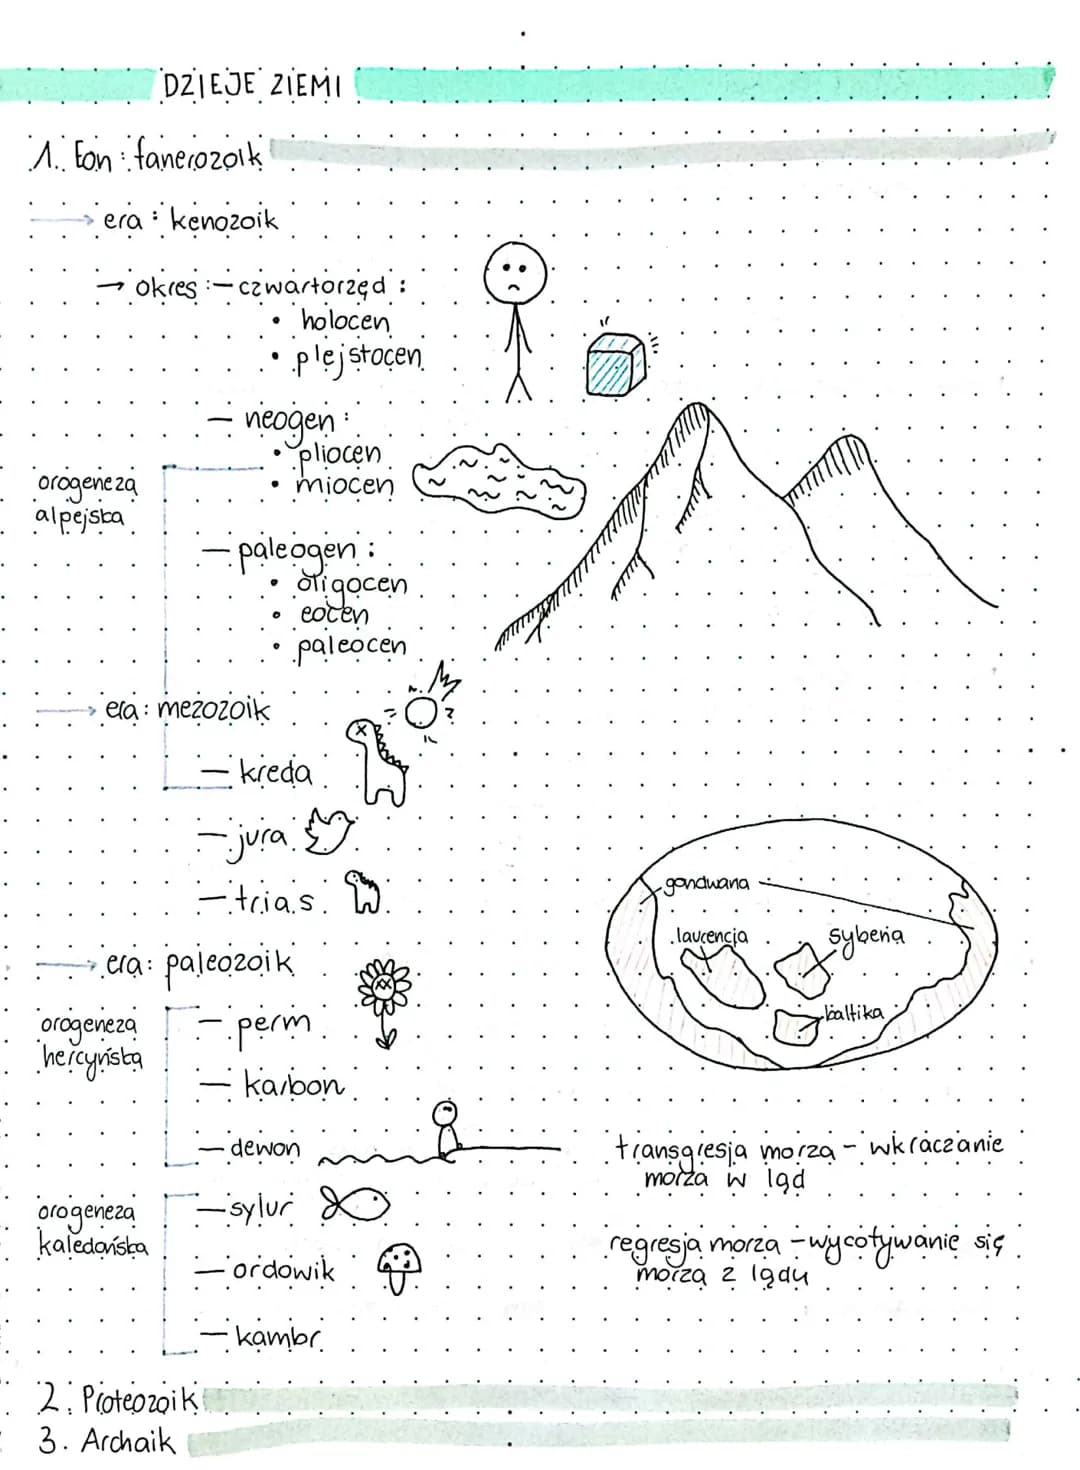 DZIEJE ZIEMI
1. Eon : fanerozoik
→ era : kenozoik
→ okres : - czwartorzęd :
• holocen
• plejstocen
- neogen :
• pliocen
• miocen
orogeneza
alpejska
- paleogen :
• oligocen
• eocen
• paleocen
→ era : mezozoik
- kreda
- jura
- trias
→ era : paleozoik
orogeneza
hercyńska
- perm
- karbon
- dewon
orogeneza
kaledońska
- sylur
- ordowik
- kambr
gondwana
laurencja
syberia
baltika
transgresja morza - wkraczanie
morza w ląd
regresja morza - wycofywanie się
morza z lądu
2. Proteozoik
3. Archaik